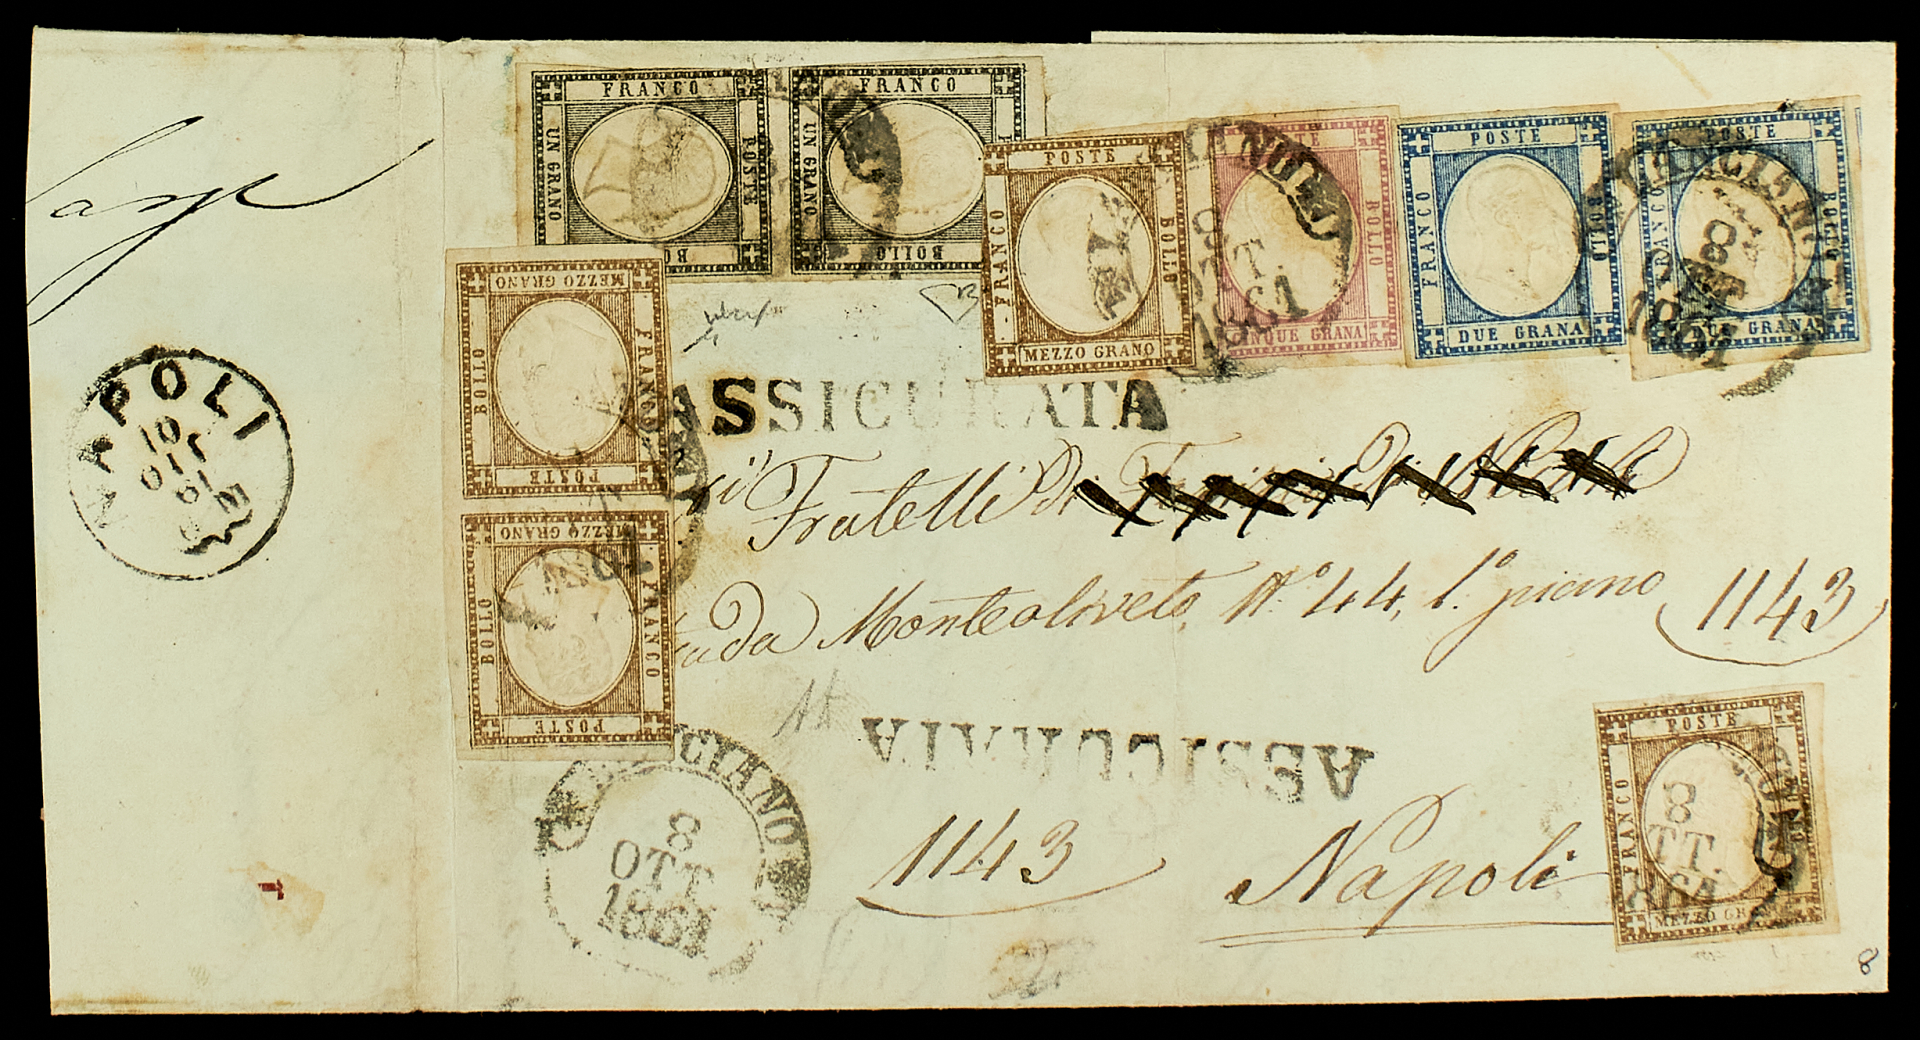 NAPOLI
10
OTT
61
FRANCO
UN GRANO
POSTE
BOLLO
FRANCO
UN GRANO
BOLLO
POSTE
FRANCO
BOLLO
MEZZO GRANO
POSTE
BOLLO
CINQUE GRANA
8
OTT.
1861
POSTE
FRANCO
BOLLO
DUE GRANA
POSTE
FRANCO
BOLLO
DUE GRANA
LANCIANO
8
OTT
1861
MEZZO GRANO
BOLLO
FRANCO
POSTE
MEZZO GRANO
BOLLO
FRANCO
POSTE
ASSICURATA
Fratelli Di
Monteoliveto, N.° 44, 1.° piano
1143
ASSICURATA
LANCIANO
8
OTT.
1861
1143
Napoli
POSTE
FRANCO
BOLLO
MEZZO GRANO
8
OTT.
1861
T
8